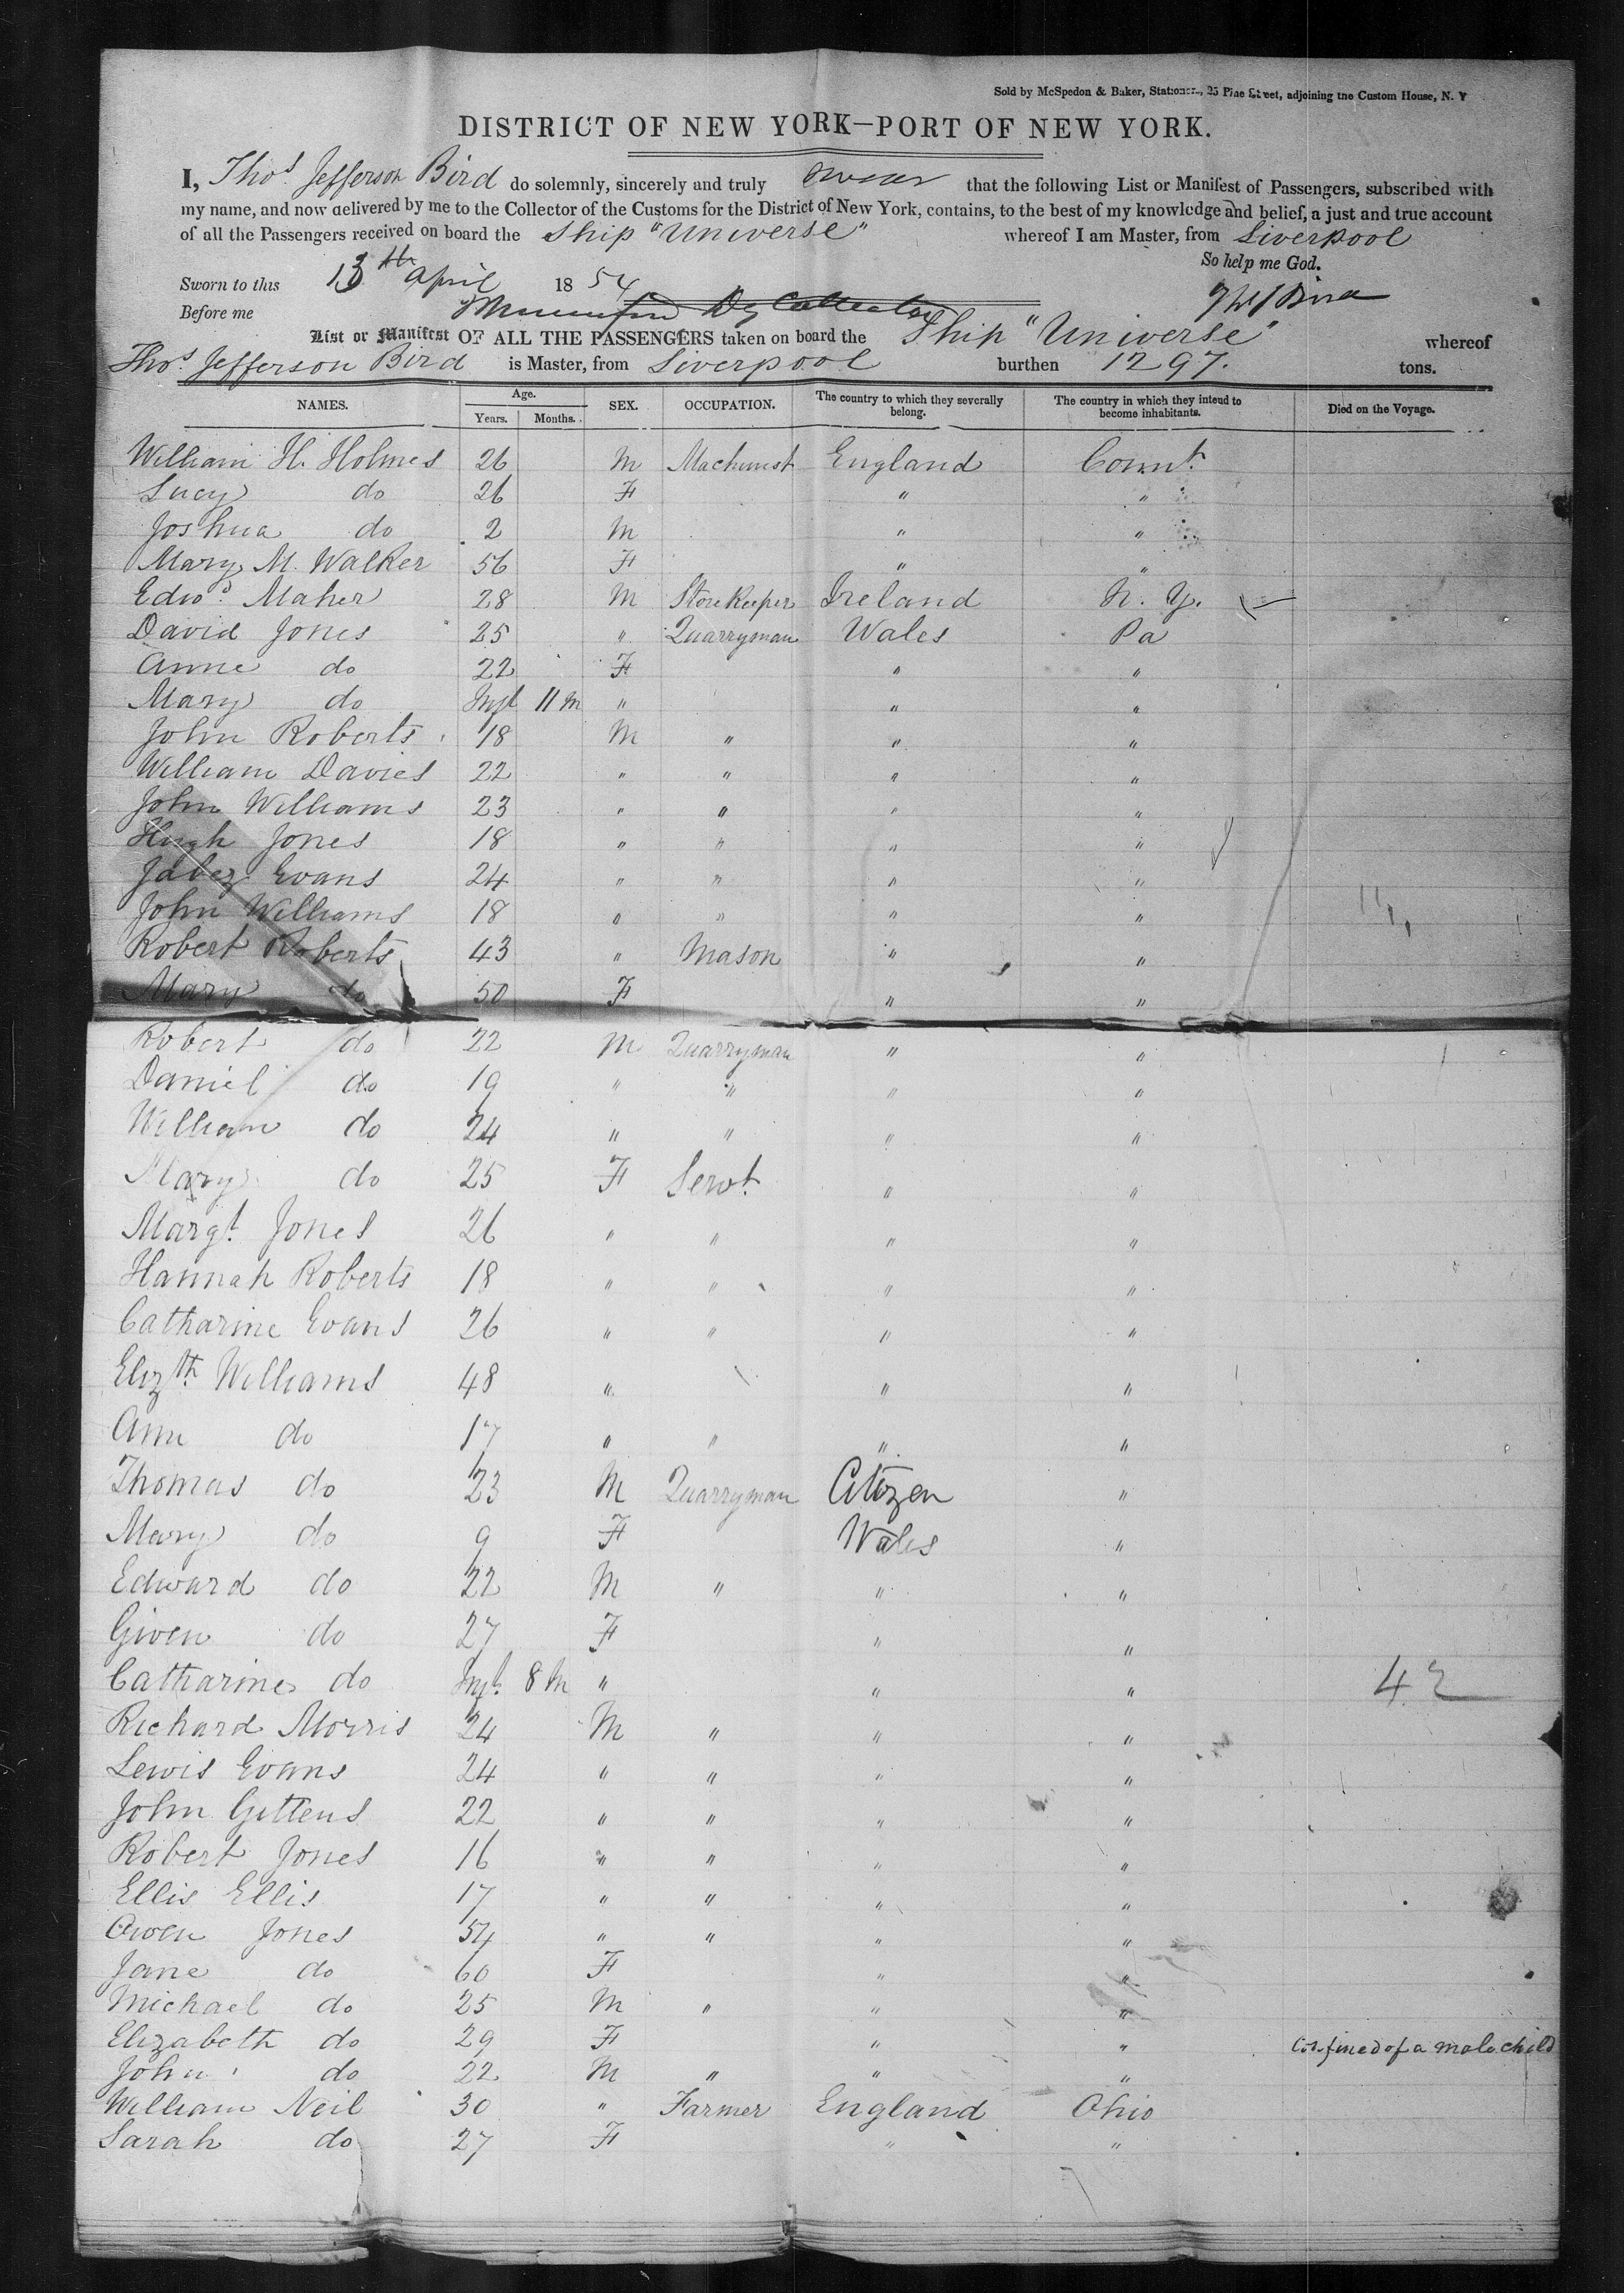 Sold by McSpedon & Baker, Stationers, 25 Pine Street, adjoining the Custom House, N. Y
DISTRICT OF NEW YORK—PORT OF NEW YORK.
I, Thos. Jefferson Bird do solemnly, sincerely and truly swear that the following List or Manifest of Passengers, subscribed with
my name, and now delivered by me to the Collector of the Customs for the District of New York, contains, to the best of my knowledge and belief, a just and true account
of all the Passengers received on board the Ship "Universe" whereof I am Master, from Liverpool
So help me God.
Sworn to this 13th April 1854 Thos J Bird
Before me Dy Collector
List or Manifest OF ALL THE PASSENGERS taken on board the Ship "Universe" whereof
Thos. Jefferson Bird is Master, from Liverpool burthen 1297. tons.
NAMES. Age. Years. Months. SEX. OCCUPATION. The country to which they severally belong. The country in which they intend to become inhabitants. Died on the Voyage.
William H. Holmes 26 M Machinist England Connt.
Lucy do 26 F " "
Joshua do 2 M " "
Mary M. Walker 56 F " "
Edwd. Maher 28 M Storekeeper Ireland N. Y.
David Jones 25 " Quarryman Wales Pa
Anne do 22 F " "
Mary do Inft 11 m " " "
John Roberts 18 M " " "
William Davies 22 " " " "
John Williams 23 " " " "
Hugh Jones 18 " " " "
Jabez Evans 24 " " " "
John Williams 18 " " " "
Robert Roberts 43 " Mason " "
Mary do 50 F " "
Robert do 22 M Quarryman " "
Daniel do 19 " " " "
William do 24 " " " "
Mary do 25 F Servt. " "
Margt. Jones 26 " " " "
Hannah Roberts 18 " " " "
Catharine Evans 26 " " " "
Elizth. Williams 48 " " "
Ann do 17 " " " "
Thomas do 23 M Quarryman Citizen "
Mary do 9 F Wales "
Edward do 22 M " " "
Given do 27 F " "
Catharine do Inft. 8 M " " " 42
Richard Morris 24 M " " "
Lewis Evans 24 " " " "
John Gittens 22 " " " "
Robert Jones 16 " " " "
Ellis Ellis 17 " " " "
Owen Jones 54 " " " "
Jane do 60 F " "
Michael do 25 M " " "
Elizabeth do 29 F " " Confined of a male child
John do 22 M " " "
William Neil 30 " Farmer England Ohio
Sarah do 27 F " "